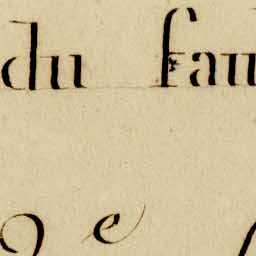 du fau
2e